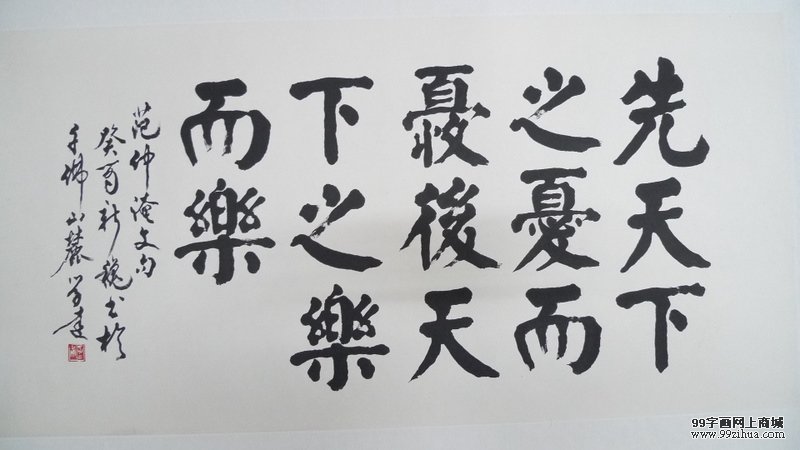 先天下
之憂而
憂後天
下之樂
而樂
范仲淹文句
癸酉新秋書於
千佛山麓學達
99字画网上商城
www.99zihua.com